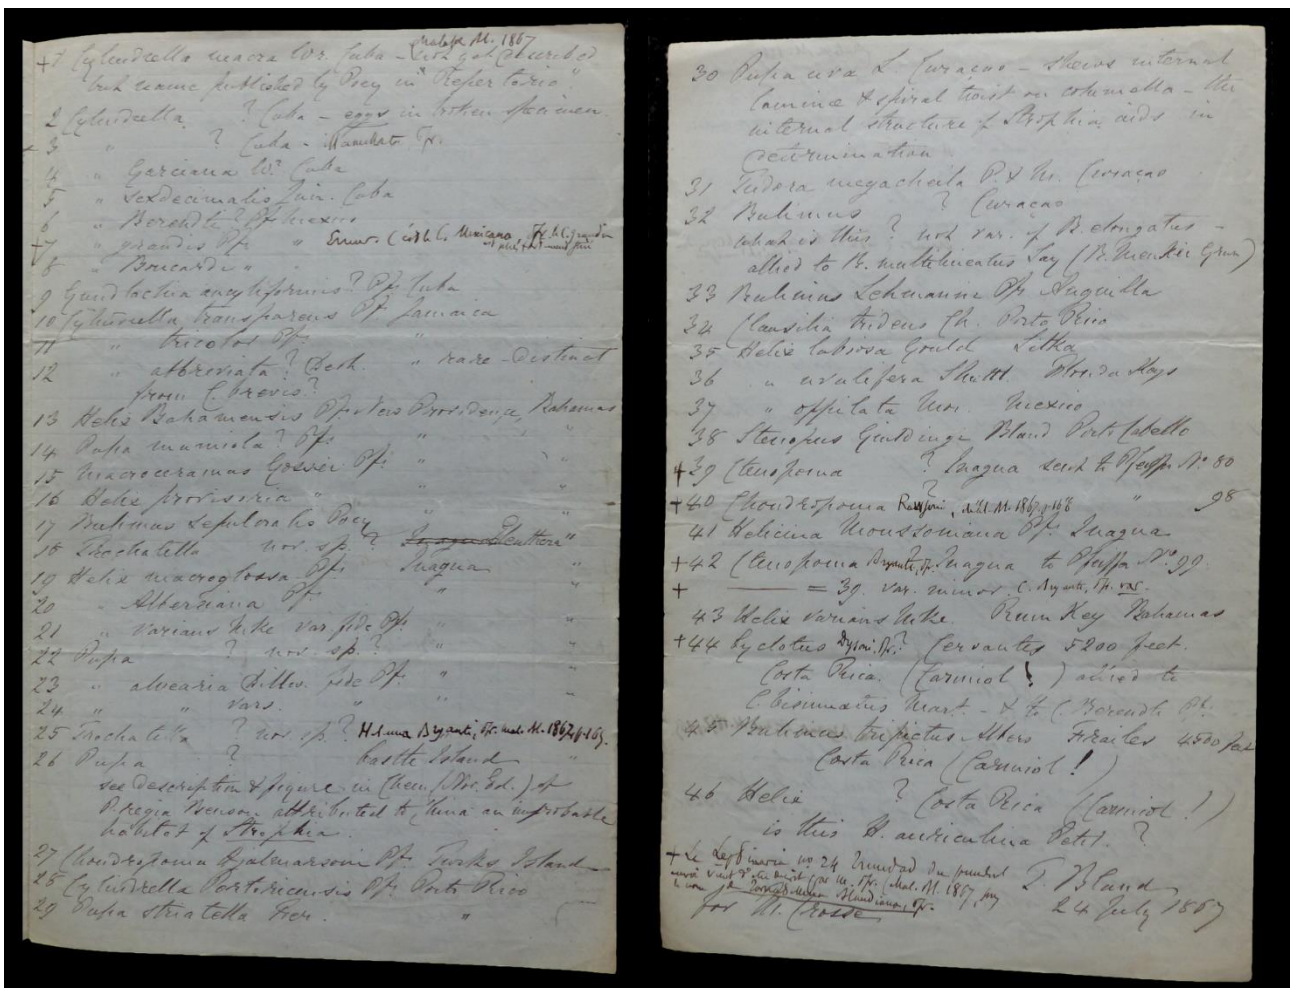 Malak M. 1867
+1 Cylindrella macra Wr. Cuba – not yet described
but name published by Poey in "Repertorio"
2 Cylindrella ? Cuba – eggs in broken specimen
3 " ? Cuba –
4 " Garciana Wr. Cuba
5 " sexdecimalis Cuba
6 " Berendti ? Pf. Mexico
+7 " grandis Pfr. "
8 " Boucardi " "
9 Gundlachia ancyliformis? Pfr. Cuba
10 Cylindrella transparens Pf. Jamaica
11 " tricolor Pf. "
12 " abbreviata? Desh. " rare – distinct
from C. brevis?
13 Helix Bahamensis Pf. New Providence, Bahamas
14 Pupa mumiola? Pf. " "
15 Macroceramus Gossei Pf. " "
16 Helix provisoria " " "
17 Bulimus sepulcralis Poey " "
18 Trochatella nov. sp.? Inagua Eleuthera "
19 Helix macroglossa Pf. Inagua "
20 " Albersiana Pf. " "
21 " varians Mke. var. fide Pf. " "
22 Pupa ? nov. sp.? " "
23 " alvearia Dillw. fide Pf. " "
24 " " vars. " "
25 Trochatella ? nov. sp? H. Bryanti, Pfr. mal. M. 1867, p. 165
26 Pupa ? Castle Island "
see description & figure in Chem. (Nov. Ed.) of
P. regia Benson attributed to China an improbable
habitat of Strophia.
27 Chondropoma Hjalmarsoni Pf. Turks Island
28 Cylindrella Portoricensis Pf. Porto Rico
29 Pupa striatella Fer. "
30 Pupa uva L. Curaçao – shews internal
laminæ & spiral twist on columella – the
internal structure of Strophia aids in
determination
31 Tudora megacheila P. & M. Curaçao
32 Bulimus ? Curaçao
what is this? not var. of B. elongatus –
allied to B. multilineatus Say (B. Menkei Grun)
33 Bulimus Lehmanni Pfr. Anguilla
34 Clausilia tridens Ch. Porto Rico
35 Helix labiosa Gould Sitka
36 " uvulifera Shuttl. Florida Keys
37 " oppilata Mor. Mexico
38 Stenopus Guildingi Bland Porto Cabello
+39 Ctenopoma ? Inagua sent to Pfeiffer No. 80
+40 Chondropoma ? Rawsoni, Mal. Bl. 1867, p. 166 " 98
41 Helicina Moussoniana Pf. Inagua
+42 Ctenopoma Bryanti, Pfr. Inagua to Pfeiffer No. 99
+ —— = 39. var. minor. C. Bryanti, Pfr. var.
43 Helix varians Mke. Rum Key Bahamas
+44 Cyclotus Dysoni, Pfr.? Cervantes 5200 feet.
Costa Rica. (Carmiol!) allied to
C. bisinuatus Mart. – & to C. Berendti Pf.
45 Bulimus tripictus Albers Frailes 4500 feet
Costa Rica (Carmiol!)
46 Helix ? Costa Rica (Carmiol!)
is this H. auriculina Petit. ?
+ Le no. 24 Trinidad du
Pfr. (Mal. M. 1867,
le nom Blandiana, Pfr.
T. Bland
for M. Crosse 24 July 1867